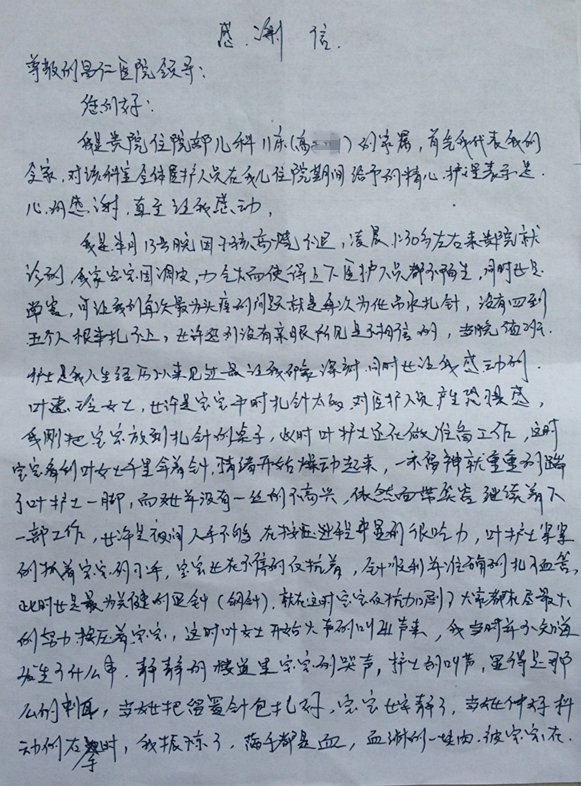 感谢信
尊敬的昌仁医院领导：
您们好：
我是贵院住院部儿科11床(高 )的家属，首先我代表我的
全家，对该科室全体医护人员在我儿住院期间给予的精心护理表示是
心的感谢，真是让我感动，
我是半月13号晚因小孩高烧不退，凌晨1:30分左右来贵院就
诊的，我家宝宝因调皮，力气大而使得上下医护人员都不陌生，同时也是
常客，可让我们每次最为头疼的问题就是每次为他吊水扎针，没有四到
五个人根本扎不上，也许您们没有亲眼所见是不相信的，当晚值班
护士是我人生经历以来见过最让我印象深刻，同时也让我感动的
叶 女士，也许是宝宝平时扎针太多，对医护人员产生恐惧感，
我刚把宝宝放到扎针的桌子，此时叶护士还在做准备工作，这时
宝宝看到叶女士手里拿着针，情绪开始燥动起来，一不留神就重重的踹
了叶护士一脚，而她并没有一丝的不高兴，依然面带笑容继续着下
一部工作，也许是夜间人手不够在按压过程中显的很吃力，叶护士牢牢
的抓着宝宝的小手，宝宝也在不停的反抗着，针顺利并准确的扎入血管，
此时也是最为关键的 针(钢针)，就在这时宝宝反抗力 了大家都在尽最大
的努力按压着宝宝，这时叶女士开始大声的叫出声来，我当时并不知道
发生了什么事，静静的楼道里宝宝的哭声，护士的叫声，显得是那
么的刺耳，当她把留置针包扎好，宝宝也安静了，当她伸好抖
动的左掌时，我振惊了，满手都是血，血淋的一块肉，被宝宝在